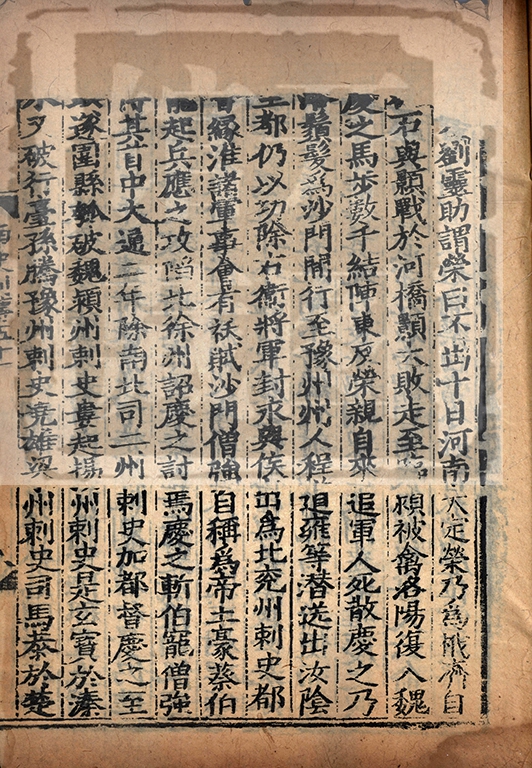 劉靈助謂榮曰不出十日河南大定榮乃爲栰濟自
石與顥戰於河橋顥大敗走至臨潁被禽洛陽復入魏
慶之馬步數千結陣東反榮親自來追軍人死散慶之乃
鬚髮爲沙門間行至豫州州人程道雍等潜送出汝陰
至都仍以功除右衛將軍封永興侯出爲北兖州刺史都
督緣淮諸軍事會有祅賊沙門僧強自稱爲帝土豪蔡伯
寵起兵應之攻陷北徐州詔慶之討焉慶之斬伯寵僧強
傳其首中大通二年除南北司二州刺史加都督慶之至
鎮遂圍縣瓠破魏潁州刺史婁起揚州刺史是玄寶於溱
水又破行臺孫騰豫州刺史堯雄梁州刺史司馬恭於楚